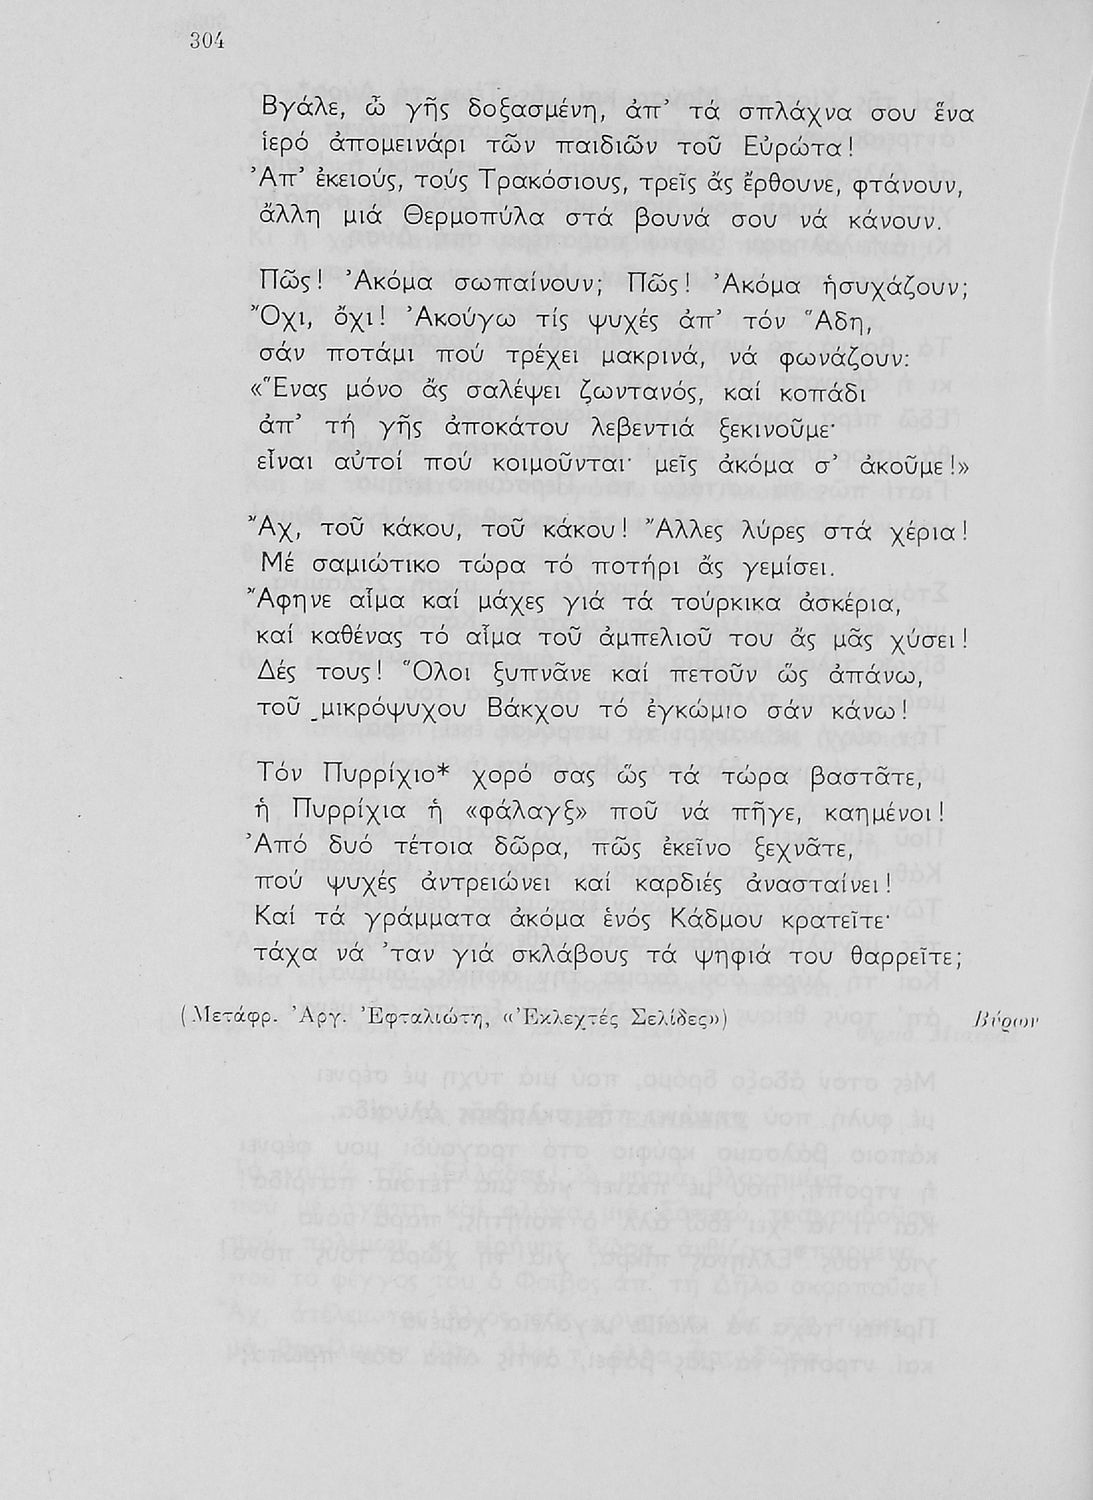 304
Βγάλε, ὦ γῆς δοξασμένη, ἀπ’ τά σπλάχνα σου ἕνα
ἱερό ἀπομεινάρι τῶν παιδιῶν τοῦ Εὐρώτα!
Ἀπ’ ἐκειούς, τούς Τρακόσιους, τρεῖς ἄς ἔρθουνε, φτάνουν,
ἄλλη μιά Θερμοπύλα στά βουνά σου νά κάνουν.
Πῶς! Ἀκόμα σωπαίνουν; Πῶς! Ἀκόμα ἡσυχάζουν;
Ὄχι, ὄχι! Ἀκούγω τίς ψυχές ἀπ’ τόν Ἅδη,
σάν ποτάμι πού τρέχει μακρινά, νά φωνάζουν:
«Ἕνας μόνο ἄς σαλέψει ζωντανός, καί κοπάδι
ἀπ’ τή γῆς ἀποκάτου λεβεντιά ξεκινοῦμε·
εἶναι αὐτοί πού κοιμοῦνται· μεῖς ἀκόμα σ’ ἀκοῦμε!»
Ἄχ, τοῦ κάκου, τοῦ κάκου! Ἄλλες λύρες στά χέρια!
Μέ σαμιώτικο τώρα τό ποτήρι ἄς γεμίσει.
Ἄφηνε αἷμα καί μάχες γιά τά τούρκικα ἀσκέρια,
καί καθένας τό αἷμα τοῦ ἀμπελιοῦ του ἄς μᾶς χύσει!
Δές τους! Ὅλοι ξυπνᾶνε καί πετοῦν ὥς ἀπάνω,
τοῦ μικρόψυχου Βάκχου τό ἐγκώμιο σάν κάνω!
Τόν Πυρρίχιο* χορό σας ὥς τά τώρα βαστᾶτε,
ἡ Πυρρίχια ἡ «φάλαγξ» ποῦ νά πῆγε, καημένοι!
Ἀπό δυό τέτοια δῶρα, πῶς ἐκεῖνο ξεχνᾶτε,
πού ψυχές ἀντρειώνει καί καρδιές ἀνασταίνει!
Καί τά γράμματα ἀκόμα ἑνός Κάδμου κρατεῖτε·
τάχα νά ’ταν γιά σκλάβους τά ψηφιά του θαρρεῖτε;
(Μετάφρ. Ἀργ. Ἐφταλιώτη, «Ἐκλεχτές Σελίδες») Βύρων